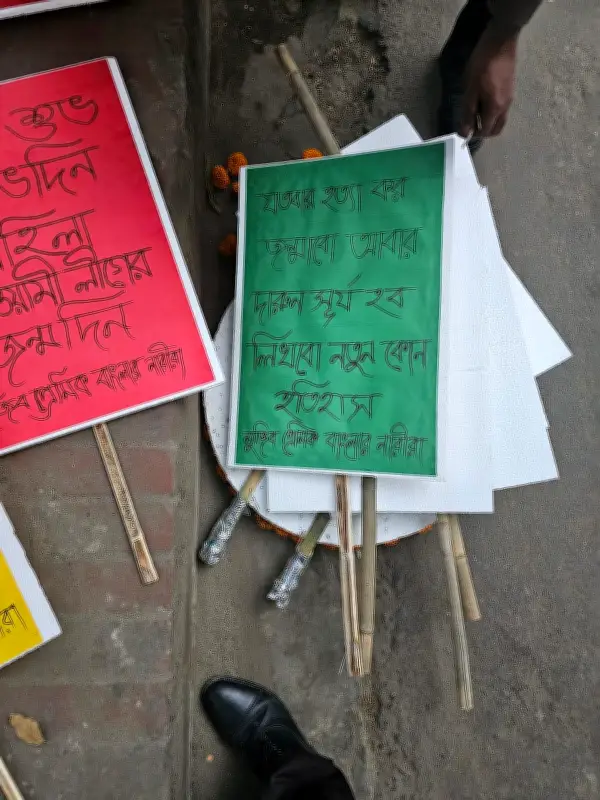 শুভ
ভদিন
হিলা
ওয়ামী লীগের
জন্ম দিন
প্রেমিক বাংলার নারীরা
যতবার হত্যা কর
জন্মাবো আবার
দারুন সূর্য হব
লিখবো নতুন কোন
ইতিহাস
মুজিব প্রেমিক বাংলার নারীরা